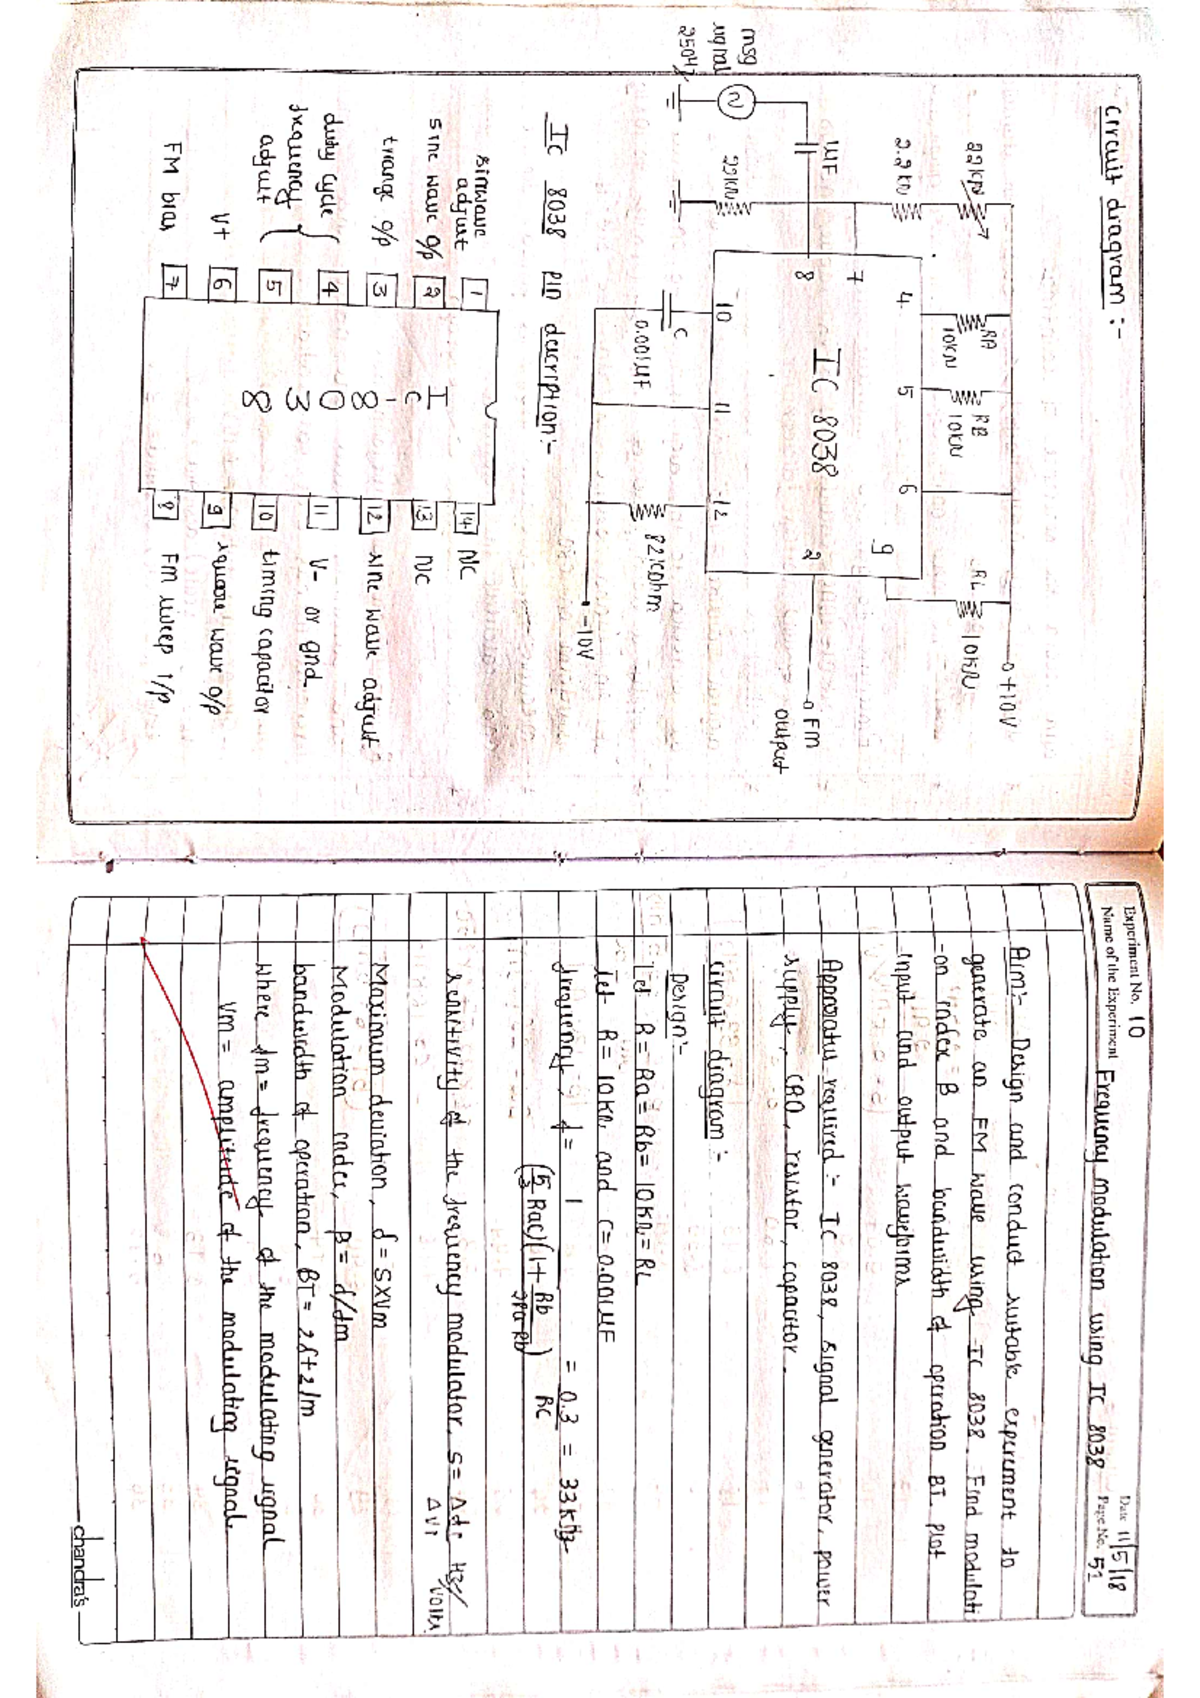 Circuit diagram :-
22KΩ
2.2KΩ
1μF
22KΩ
msg
signal
250Hz
RA
10KΩ
RB
10KΩ
RL
10KΩ
+10V
4 5 6
7
8
IC 8038
9
2
FM
output
10 11 12
C
0.001μF
82Kohm
-10V
IC 8038 pin description:-
sinwave
adjust
1
sine wave o/p 2
triange o/p 3
duty cycle 4
frequency
adjust
5
V+ 6
FM bias 7
IC-8038
14 NC
13 NC
12 sine wave adjust
11 V- or gnd
10 timing capacitor
9 square wave o/p
8 Fm sweep i/p
Experiment No. 10
Date 11/5/18
Name of the Experiment Frequency modulation using IC 8038
Page No. 51
Aim:- Design and conduct suitable experiment to
generate an FM wave using IC 8038 Find modulati
-on index B and bandwidth of operation BT. Plot
input and output waveforms
Apparatus required:- IC 8038, signal generator, power
supply, CRO, resistor, capacitor.
circuit diagram:-
Design:-
Let R = Ra = Rb = 10KΩ = RL
Let R = 10KΩ and C = 0.001μF
frequency, f = 1 / (5/3 RaC)(1 + Rb/2Ra-Rb) = 0.3/RC = 33KHz
sensitivity of the frequency modulator, S = Δfc/ΔVi Hz/volts
Maximum deviation, δ = S×Vm
Modulation index, β = δ/fm
bandwidth of operation, BT = 2δ+2fm
where fm = frequency of the modulating signal
Vm = amplitude of the modulating signal
chandra's